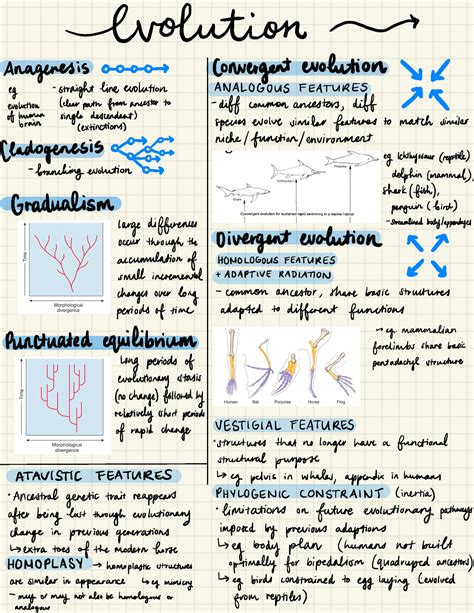 Evolution
Anagenesis
eg
evolution
of human
brain
- straight line evolution
(clear path from ancestor to
single descendant)
(extinctions)
Cladogenesis
- branching evolution
Gradualism
Time
Morphological
divergence
large differences
occur through the
accumulation of
small incremental
changes over long
periods of time
Punctuated equilibrium
Time
Morphological
divergence
long periods of
evolutionary stasis
(no change) followed by
relatively short periods
of rapid change
ATAVISTIC FEATURES
• Ancestral genetic trait reappears
after being lost through evolutionary
change in previous generations
↳ extra toes of the modern horse
HOMOPLASY → homoplastic structures
are similar in appearance ↳ eg mimicry
- may or may not also be homologous or
analogous
Convergent evolution
ANALOGOUS FEATURES
- diff common ancestors, diff
species evolve similar features to match similar
niche / function / environment
Shark
Dolphin
Convergent evolution for sustained rapid swimming in a marine habitat
eg Ichthyosaur (reptile)
dolphin (mammal),
shark (fish),
penguin (bird)
- Streamlined body/appendages
Divergent evolution
HOMOLOGOUS FEATURES
+ ADAPTIVE RADIATION
- common ancestor, share basic structures
adapted to different functions
Human Bat Porpoise Horse Frog
↳ eg. mammalian
forelimbs share basic
pentadactyl structure
VESTIGIAL FEATURES
• structures that no longer have a functional
structural purpose
↳ eg pelvis in whales, appendix in humans
PHYLOGENIC CONSTRAINT (inertia)
• limitations on future evolutionary pathways
imposed by previous adaptions
↳ eg body plan (humans not built
optimally for bipedalism (quadruped ancestors)
↳ eg birds constrained to egg laying (evolved
from reptiles)